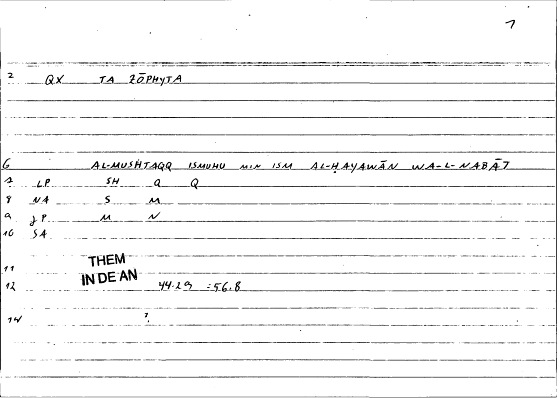 7
2 QX TA ZŌPHYTA
6 AL-MUSHTAQQ ISMUHU MIN ISM AL-ḤAYAWĀN WA-L-NABĀT
7 LP SH Q Q
8 NA S M
9 JP M N
10 SA
THEM
11 IN DE AN
12 44.29 =56.8
14 7.